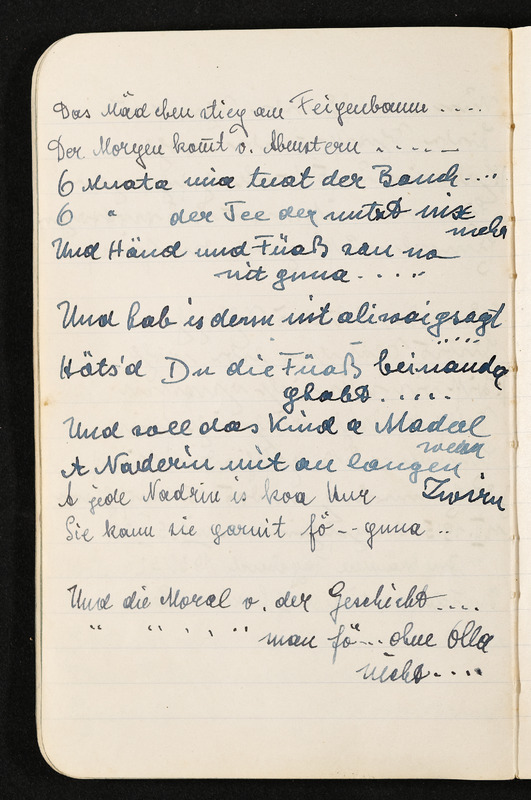 Das Mädchen stieg am Feigenbaum ....
Der Morgen kom̄t v. Abenstern .....
6 Mnata mia tuat der Bauch....
6 " der Tee der nutzt nix
mehr
Und Händ und Füaß san no
nit gnua .....
Und hab is denn nit aliwai gsagt
.....
Häts'd Du die Füaß beinanda
ghabt.....
Und soll das Kind a Madal
wean
A Naderin mit an langen
Zwirn
A jede Nadrin is koa Hur
Sie kann sie garnit fö-- gnua ..
Und die Moral v. der Geschicht....
" " " " man fö... ohne Olla
nicht....